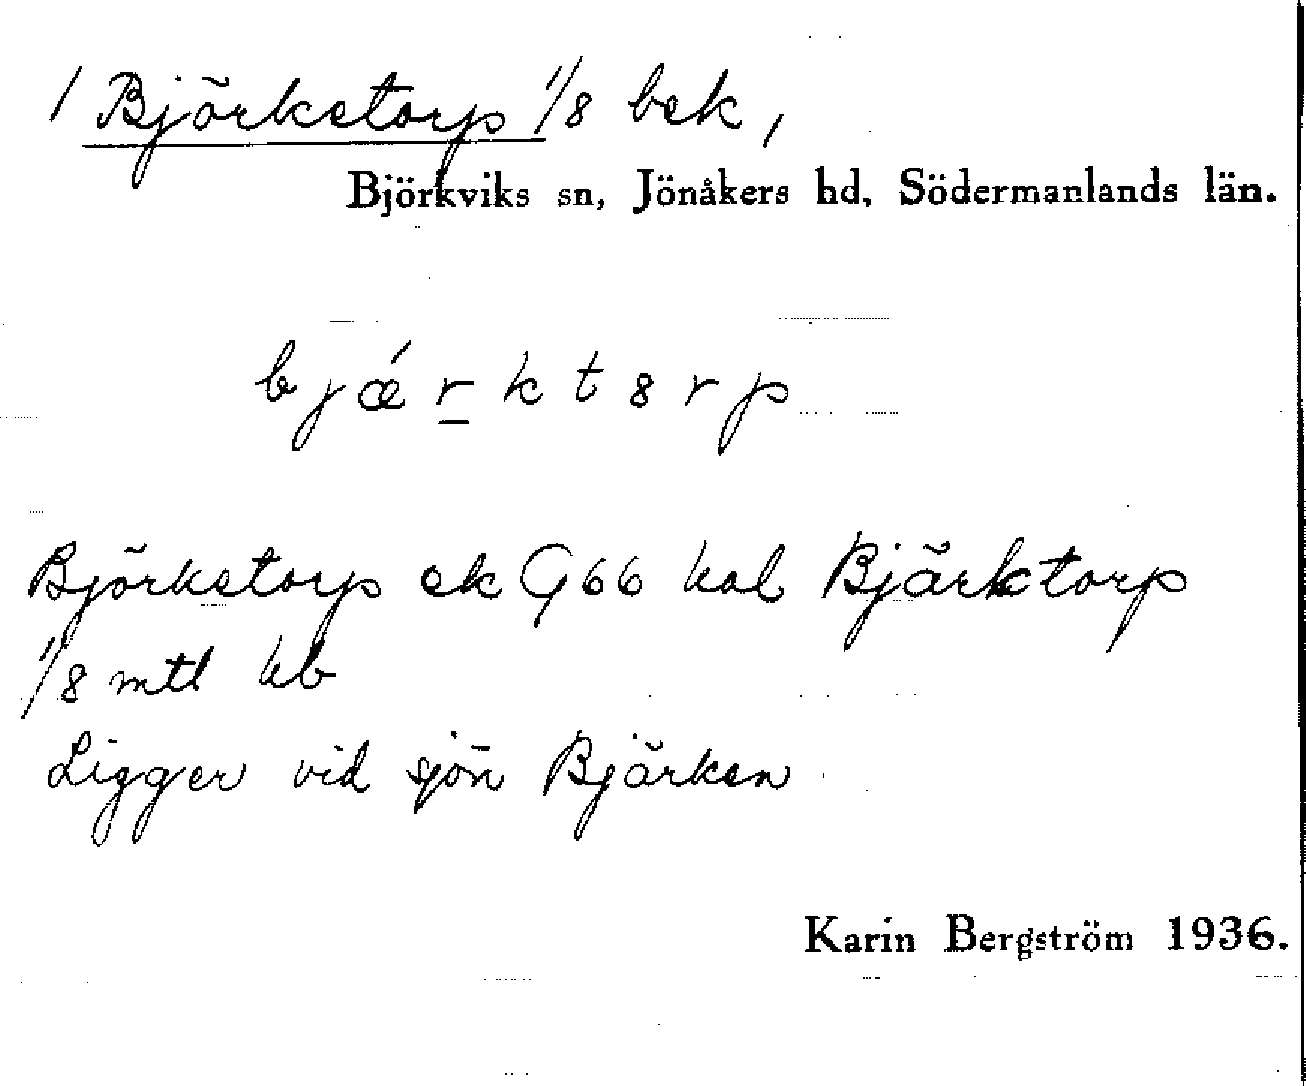 1 Björkstorp 1/8 bek,
Björkviks sn, Jönåkers hd, Södermanlands län.
b j ǽ r k t 8 r p
Björkstorp ek G66 kal Bjärktorp
1/8 mtl kb
Ligger vid sjön Bjärken
Karin Bergström 1936.